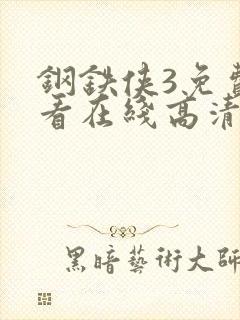 鋼鉄侠3免費
看在綫高清
黑暗藝術大師